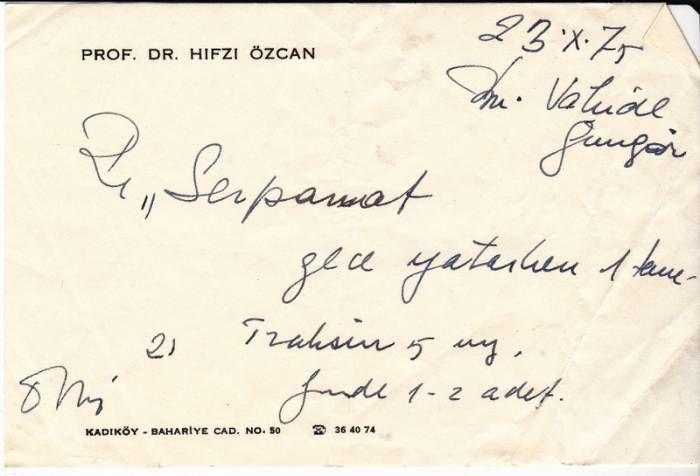 PROF. DR. HIFZI ÖZCAN
23.X.75
Vahide
Güngör
Serpamat
gece yatarken 1 tane
2) Tralısin 5 mg.
günde 1-2 adet.
KADIKÖY - BAHARİYE CAD. NO. 50 ☎ 36 40 74